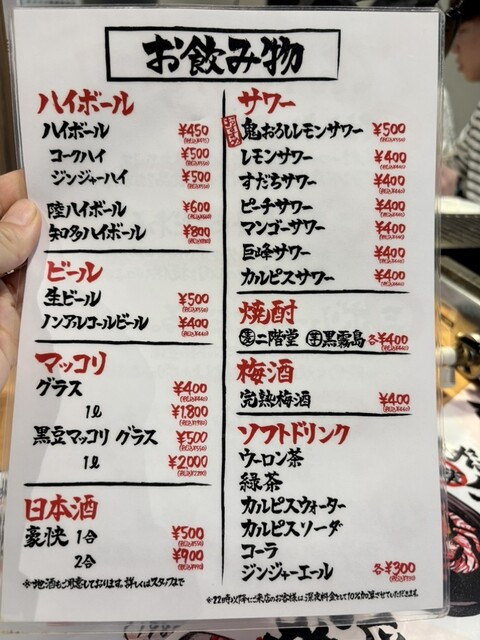 お飲み物
ハイボール
ハイボール ¥450
コークハイ ¥500
ジンジャーハイ ¥500
陸ハイボール ¥600
知多ハイボール ¥800
ビール
生ビール ¥500
ノンアルコールビール ¥400
マッコリ
グラス ¥400
1ℓ ¥1,800
黒豆マッコリ グラス ¥500
1ℓ ¥2,000
日本酒
豪快 1合 ¥500
2合 ¥900
※地酒もご用意しております。詳しくはスタッフまで
サワー
鬼おろしレモンサワー ¥500
レモンサワー ¥400
すだちサワー ¥400
ピーチサワー ¥400
マンゴーサワー ¥400
巨峰サワー ¥400
カルピスサワー ¥400
焼酎
麦二階堂 芋黒霧島 各¥400
梅酒
完熟梅酒 ¥400
ソフトドリンク
ウーロン茶
緑茶
カルピスウォーター
カルピスソーダ
コーラ
ジンジャーエール 各¥300
※22時以降にご来店のお客様は、深夜料金として10%加算させていただきます。